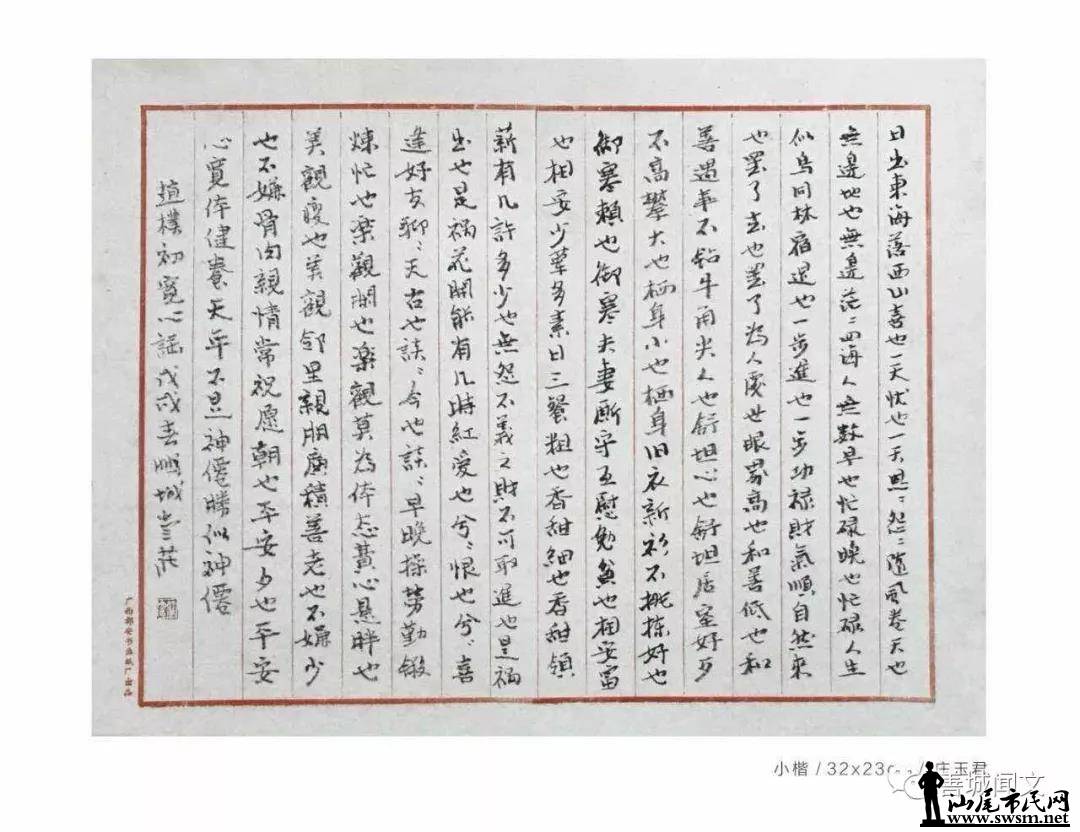 日出東海落西山喜也一天忧也一天恩〻怨〻随風卷天也
無邊地也無邊茫〻四海人無數早也忙碌晚也忙碌人生
似鸟同林宿退也一步進也一步功禄財氣順自然來
也罢了去也罢了為人處世眼界高也和善低也和
善遇事不鉆牛角尖人也舒坦心也舒坦居室好歹
不高攀大也栖身小也栖身旧衣新衫不挑揀好也
御寒賴也御寒夫妻厮守互慰勉貧也相安富
也相安少荤多素日三餐粗也香甜細也香甜領
薪有几許多少也無怨不義之財不可取進也是禍
出也是祸花開能有几時紅爱也兮〻恨也兮〻喜
逢好友聊〻天古也談〻今也談〻早晚操勞勤鍛
煉忙也楽觀閑也楽觀莫為体态費心思胖也
美觀瘦也美觀邻里親朋廣積善老也不嫌少
也不嫌骨肉親情常祝愿朝也平安夕也平安
心寬体健養天年不是神僊勝似神僊
趙樸初寬心謡戊戌春順城玉莊
小楷 / 32x23c / 庄玉君
善城闻文
汕尾市民网
www.swsm.net